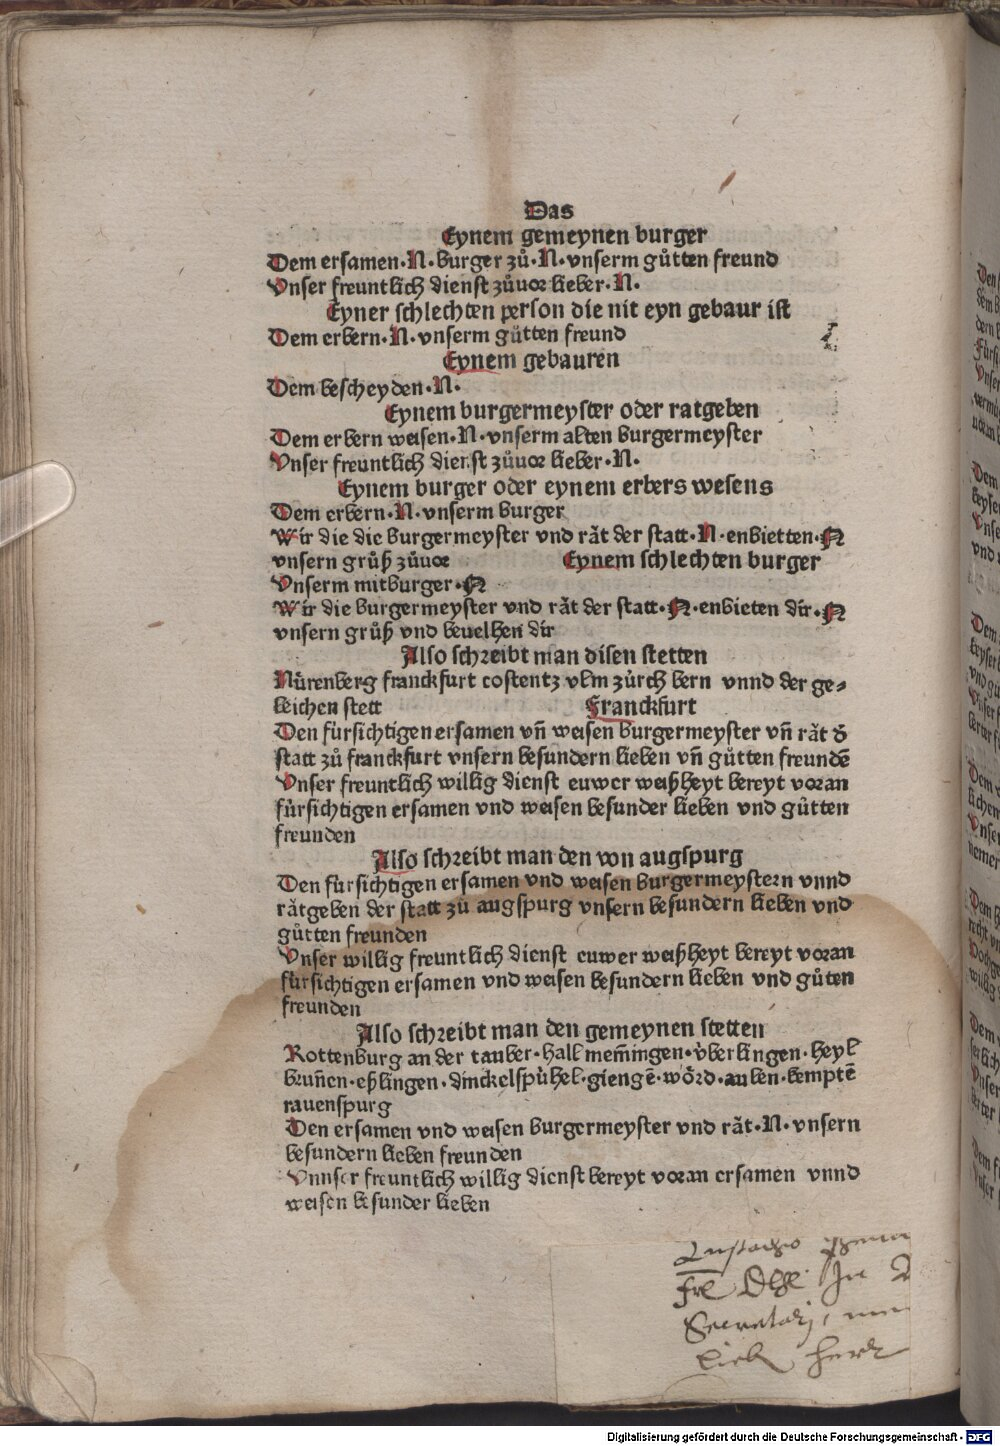 Das
Eynem gemeynen burger
Dem ersamen·N·burger zů·N·vnserm gůtten freund
Vnser freuntlich dienst zůuor lieber·N·
Eyner schlechten person die nit eyn gebaur ist
Dem erbern·N·vnserm gůtten freund
Eynem gebauren
Dem bescheyden·N·
Eynem burgermeyster oder ratgeben
Dem erbern weisen·N·vnserm alten burgermeyster
Vnser freuntlich dienst zůuor lieber·N·
Eynem burger oder eynem erbers wesens
Dem erbern·N·vnserm burger
Wir die die burgermeyster vnd rǎt der statt·N·enbietten·N
vnsern grůß zůuor Eynem schlechten burger
Vnserm mitburger·N
Wir die burgermeyster vnd rǎt der statt·N·enbieten dir·N
vnsern grůß vnd beuelhen dir
Also schreibt man disen stetten
Nůrenberg franckfurt costentz vlm zůrch bern vnnd der ge⸗
leichen stett Franckfurt
Den fürsichtigen ersamen vñ weisen burgermeyster vñ rǎt d̄
statt zů franckfurt vnsern besundern lieben vñ gůtten freundē
Vnser freuntlich willig dienst euwer weißheyt bereyt voran
fürsichtigen ersamen vnd weisen besunder lieben vnd gůtten
freunden
Also schreibt man den von augspurg
Den fürsichtigen ersamen vnd weisen burgermeystern vnnd
rǎtgeben der statt zů augspurg vnsern besundern lieben vnd
gůtten freunden
Vnser willig freuntlich dienst euwer weißheyt bereyt voran
fürsichtigen ersamen vnd weisen besundern lieben vnd gůten
freunden
Also schreibt man den gemeynen stetten
Rottenburg an der tauber·hall mem̄ingen·v̈berlingen·heyl
brun̄en·eßlingen·dinckelspůhel·giengē·wörd·aulen·kemptē
rauenspurg
Den ersamen vnd weisen burgermeyster vnd rǎt·N·vnsern
besundern lieben freunden
Vnnser freuntlich willig dienst bereyt voran ersamen vnnd
weisen besunder lieben
Secretarj
lieb herr
Digitalisierung gefördert durch die Deutsche Forschungsgemeinschaft - DFG